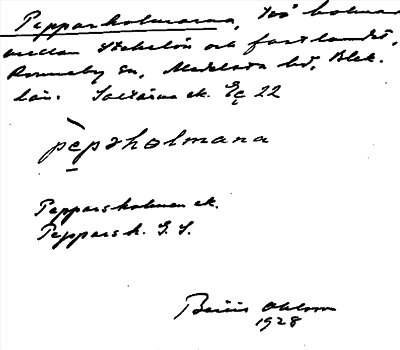 Pepparholmarna, två holmar
mellan Stekelön och fastlandet,
Ronneby sn, Medelsta hd, Blek.
län. ek. 22
pepərholmana
Pepparsholmen ek.
Peppars h. G. S.
1928